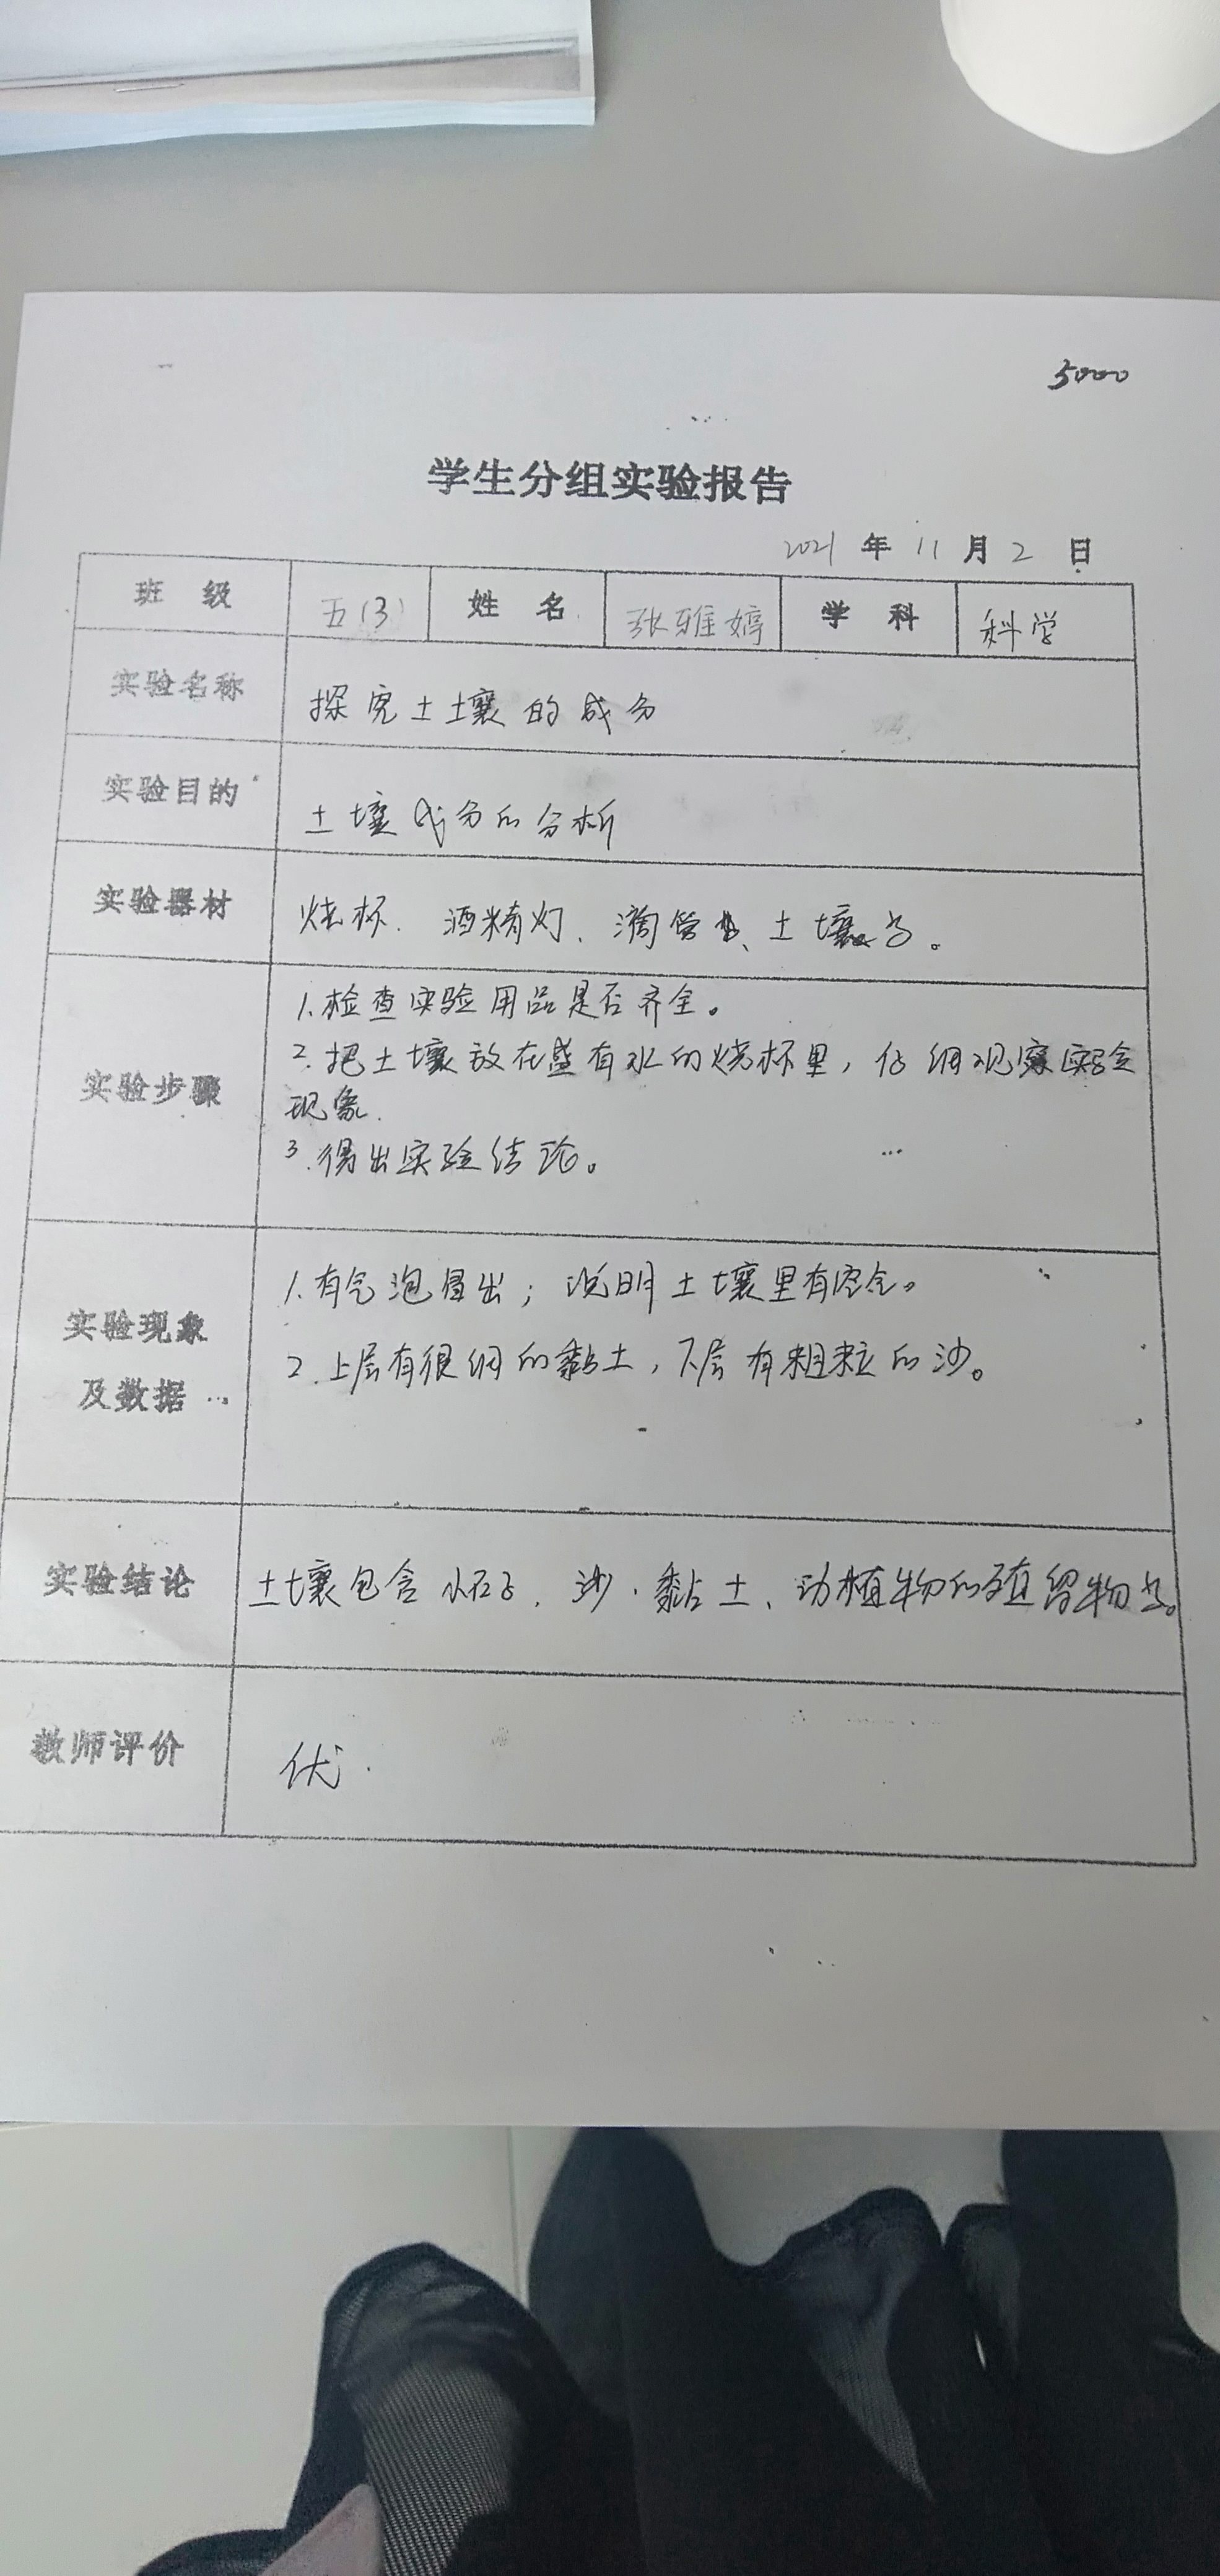 5000
学生分组实验报告
2021 年 11 月 2 日
班 级 五(3) 姓 名 张雅婷 学 科 科学
实验名称 探究土壤的成分
实验目的 土壤成分的分析
实验器材 烧杯、酒精灯、滴管、土壤等。
实验步骤 1.检查实验用品是否齐全。
2.把土壤放在盛有水的烧杯里，仔细观察实验
现象.
3.得出实验结论。
实验现象
及数据
1.有气泡冒出；说明土壤里有空气。
2.上层有很细的黏土，下层有粗粒的沙。
实验结论 土壤包含小石子、沙、黏土、动植物的殖留物等。
教师评价 优.